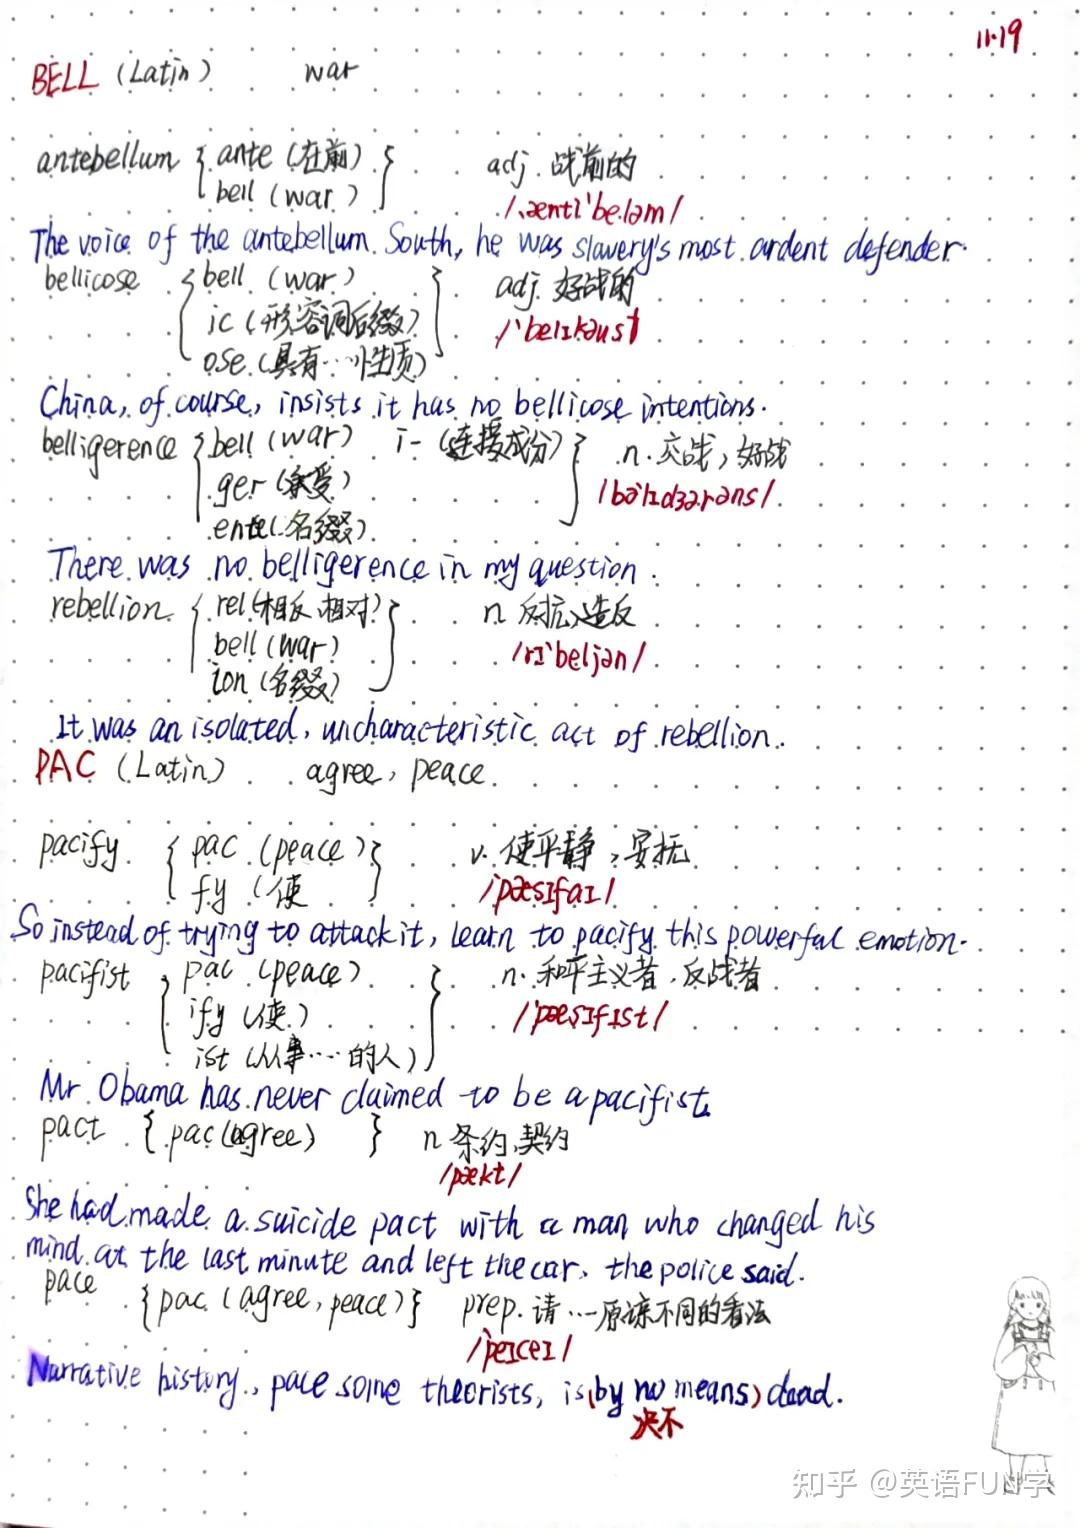 11.19
BELL (Latin) war
antebellum { ante (在前) } adj. 战前的
bell (war)
/ˌæntɪˈbe.ləm/
The voice of the antebellum South, he was slavery's most ardent defender.
bellicose { bell (war) } adj. 好战的
ic (形容词后缀) /ˈbelɪkəʊs/
ose (具有…性质)
China, of course, insists it has no bellicose intentions.
belligerence { bell (war) i- (连接成分) } n. 交战, 好战
ger (承受) /bəˈlɪdʒə.rəns/
ente (名缀)
There was no belligerence in my question.
rebellion { rel (相反、相对) } n. 反抗、造反
bell (war) /rɪˈbeljən/
ion (名缀)
It was an isolated, uncharacteristic act of rebellion.
PAC (Latin) agree, peace
pacify { pac (peace) } v. 使平静, 安抚
fy (使 /ˈpæsɪfaɪ/
So instead of trying to attack it, learn to pacify this powerful emotion.
pacifist { pac (peace) } n. 和平主义者, 反战者
ify (使) /ˈpæsɪfɪst/
ist (从事……的人)
Mr. Obama has never claimed to be a pacifist.
pact { pac (agree) } n 条约、契约
/pækt/
She had made a suicide pact with a man who changed his
mind at the last minute and left the car, the police said.
pace { pac (agree, peace) } prep. 请…原谅不同的看法
/ˈpeɪceɪ/
Narrative history, pace some theorists, is (by no means) dead.
决不
知乎 @英语FUN学